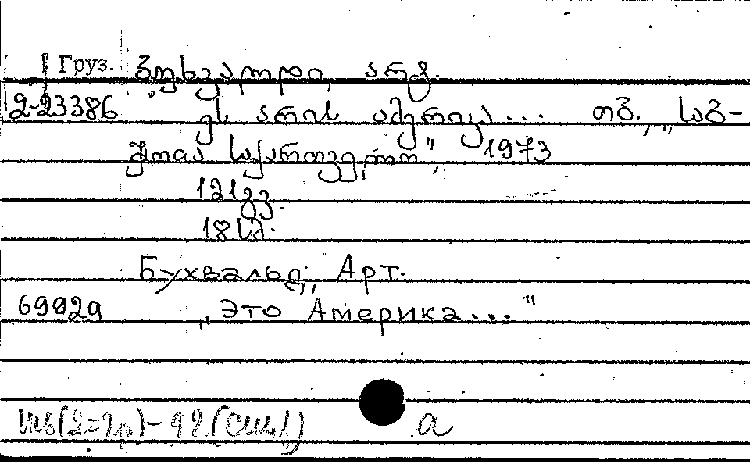 Груз. ბუხვალდი, არტ.
2-23386 ეს არის ამერიკა... თბ., „საბ-
ჭოთა საქართველო", 1973
121გვ.
18სმ.
Бухвальд, Арт.
69029 „Это Америка..."
а